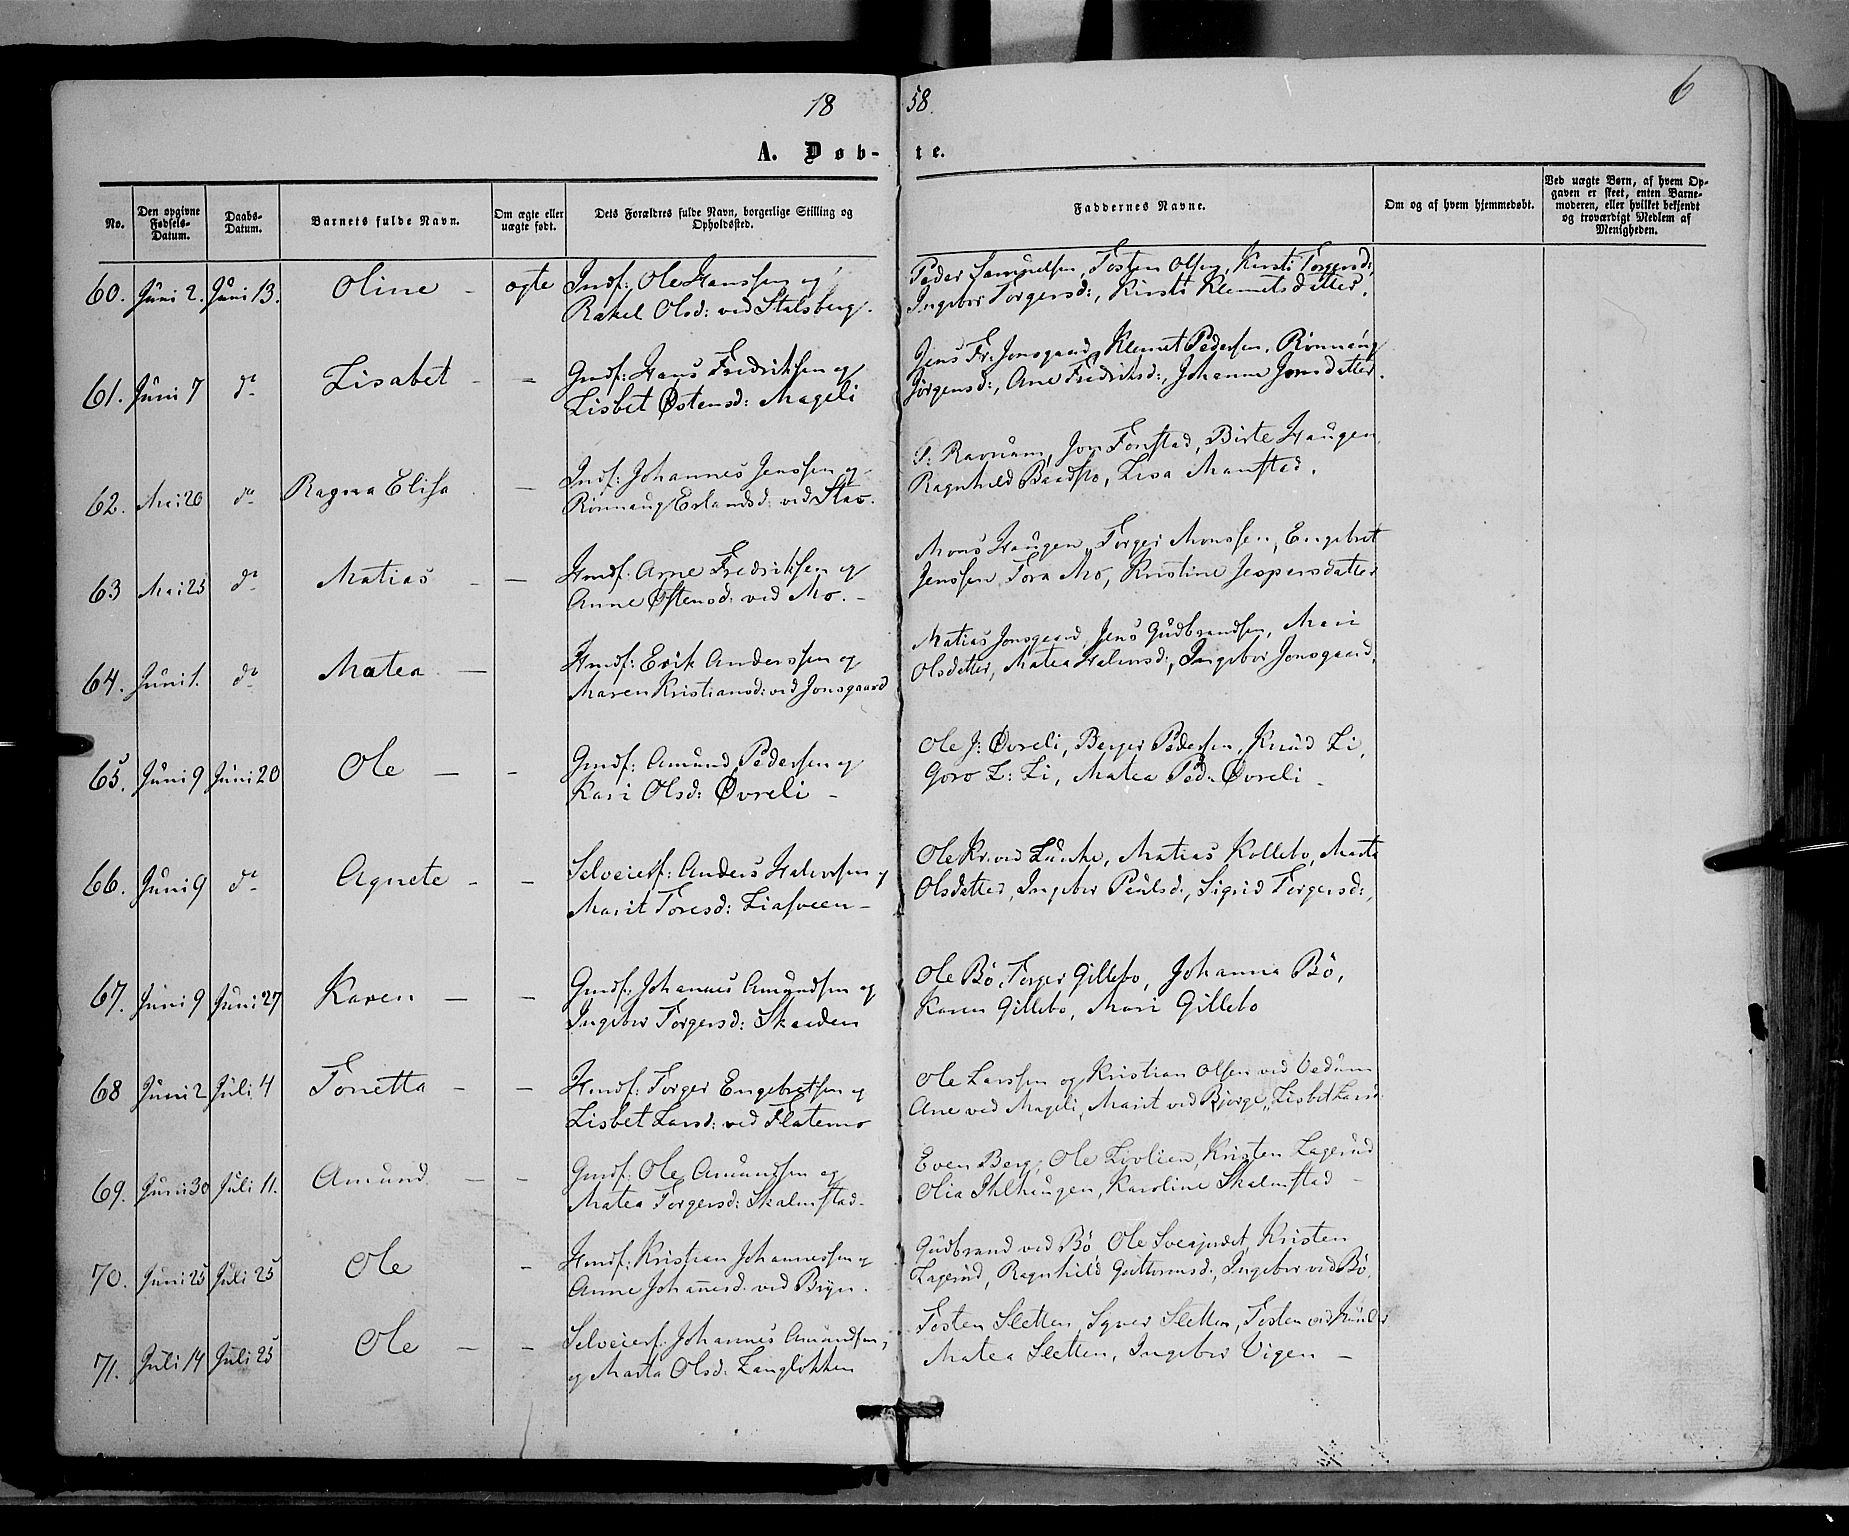 18 58. 6
A. Døb- te.
No. Den opgivne Fødsels-Datum. Daabs-Datum. Barnets fulde Navn. Om ægte eller uægte født. Dets Forældres fulde Navn, borgerlige Stilling og Opholdssted. Faddernes Navne. Om og af hvem hjemmedøbt. Ved uægte Børn, af hvem Opgaven er skeet, enten Barnemoderen, eller hvilket bekjendt og troværdigt Medlem af Menigheden.
60. Juni 2. Juni 13. Oline - ægte Indf: Ole Hanssen og Peder Samuelsen, Tosten Olsen, Kirsti Torgersd:,
Rakel Olsd: ved Stalsberg. Ingebor Torgersd:, Kirsti Klemetsdatter.
61. Juni 7 do Lisabet - - Gmdf: Hans Fredriksen og Jens Fr: Jonsgaard, Klemet Pedersen, Rønnaug
Lisbet Østensd: Mageli Jørgensd:, Ane Fredriksd:, Johanne Jonsdatter.
62. Mai 20 do Ragna Elisa - Indf: Johannes Jenssen og P: Ravnum, Jon Fonstad, Birte Haugen
Rønnaug Erlandsd: ved Stav. Ragnhild Baadstø, Lisa Manstad.
63 Mai 25 do Matias - - Hmdf: Arne Fredriksen og Mons Haugen, Torger Monssen, Engebret
Anne Østensd: ved Mo. - Jenssen, Tora Mo, Kristine Jespersdatter
64. Juni 1. do Matea - Hmdf: Erik Anderssen og Matias Jonsgaard, Jens Gudbrandsen, Mari
Maren Kristiansd: ved Jonsgaard Olsdatter, Matea Halvorsd:, Ingebor Jonsgaard.
65. Juni 9 Juni 20 Ole - - Gmdf: Amund Pedersen og Ole J: Øvreli, Berger Pedersen, Knud Li,
Kari Olsd: Øvreli - Goro L: Li, Matea Ped: Øvreli -
66. Juni 9 do Agnete - - Selveierf: Anders Halvorsen og Ole Kr. ved Matias Kollebo, Marta
Marit Toresd: Liasveen - Olsdatter, Ingebor Paulsd:, Sigrid Torgersd:,
67. Juni 9 Juni 27 Karen - - Gmdf: Johannes Amundsen og Ole Bø, Torger Gillebo, Johanna Bø,
Ingebor Torgersd: Skaaden Karen Gillebo, Mari Gillebo
68 Juni 2 Juli 4 Tonetta - - Hmdf: Torger Engebretsen og Ole Larssen og Kristian Olsen ved Vedum
Lisbet Larsd: ved Flatemo Ane ved Mageli, Marit ved Bjørge, Lisbet Larsd:
69. Juni 30 Juli 11. Amund - - Gmdf: Ole Amundsen og Even Berg, Ole Livlien, Kristen Lagerud
Matea Torgersd: Skalmstad - Olia Ihlhaugen, Karoline Skalmstad -
70. Juni 25 Juli 25 Ole - Hmdf: Kristian Johannessen og Gudbrand ved Bø, Ole Kristen
Anne Johanesd. ved Bryn. Lagerud, Ragnhild Guttormsd:, Ingebor ved Bø.
71. Juli 14 Juli 25 Ole - - Selveierf: Johannes Amundsen, Tosten Sletten, Syver Sletten, Tosten ved
og Marta Olsd: Langløkken Matea Sletten, Ingebor Vigen -